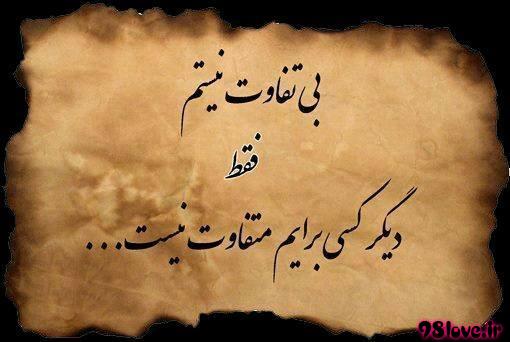 بی تفاوت نیستم
فقط
دیگر کسی برایم متفاوت نیست...
98love.ir